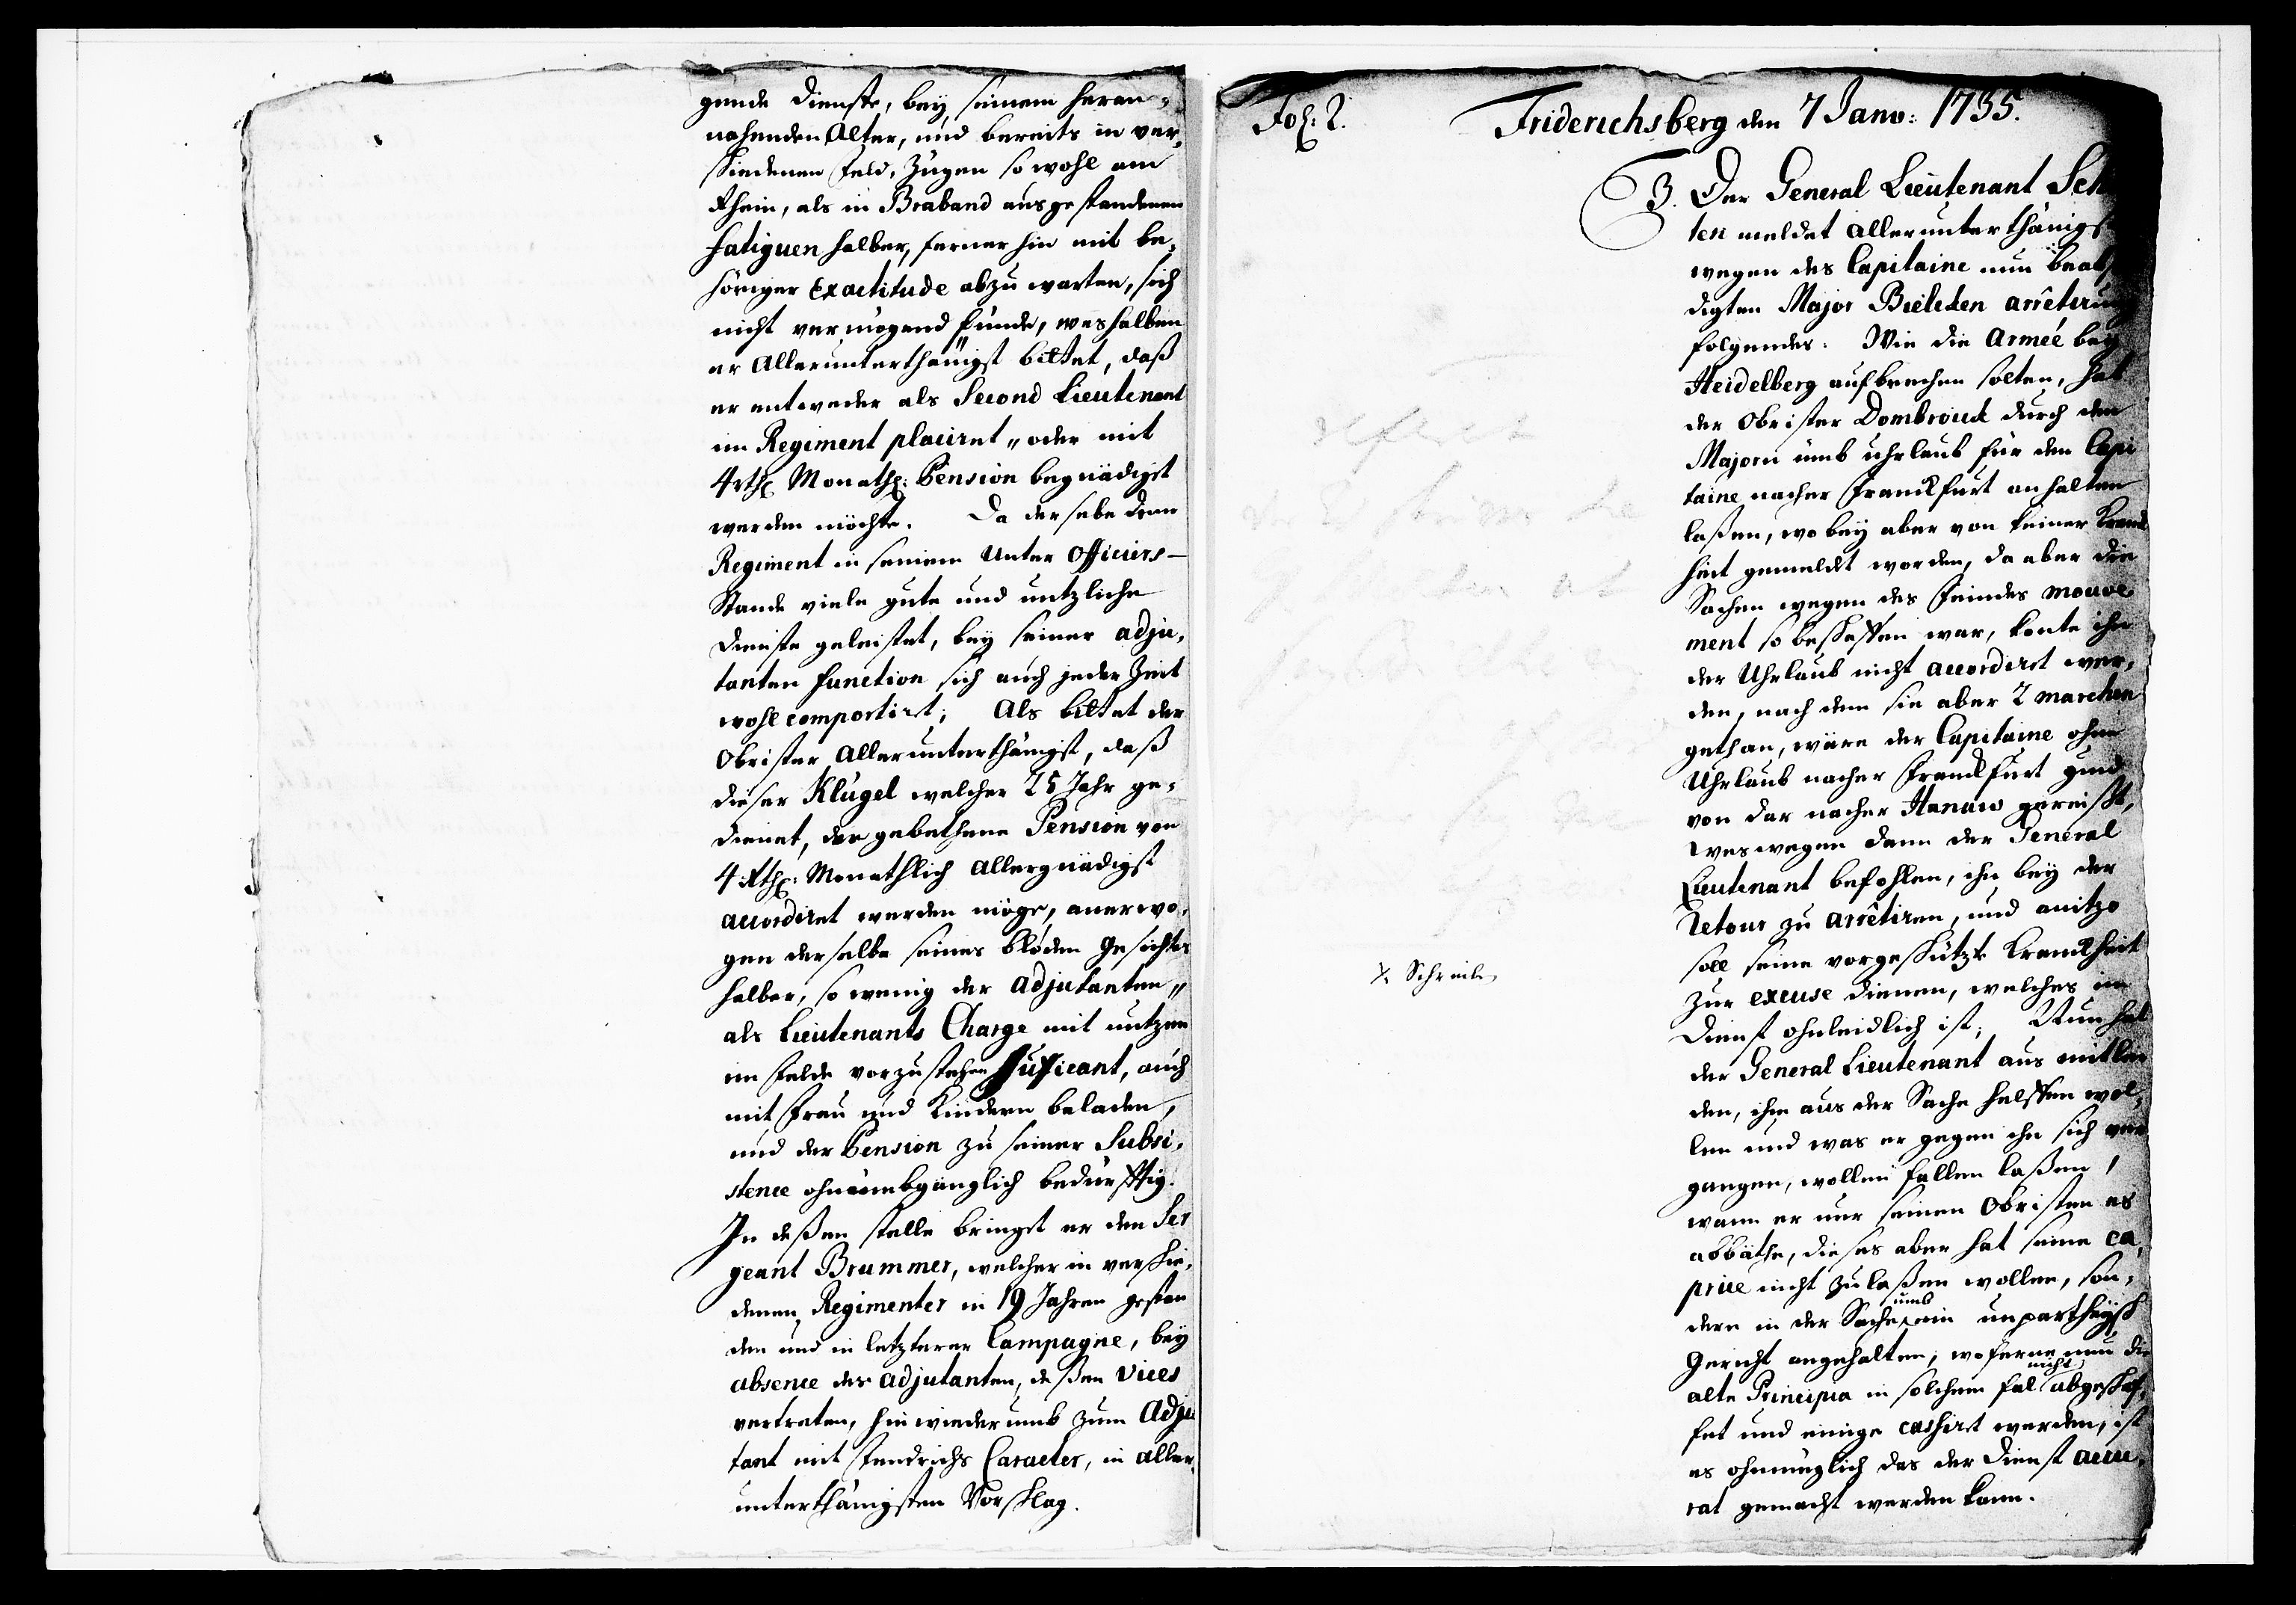 gende Dienste, bey seinem heran-
nahenden Alter, und bereits in ver-
schiedenen Feld-Zügen so wohl am
Rhein, als in Braband ausgestandenen
fatiguen halber, fernerhin mit be-
höriger Exactitude abzuwarten, sich
nicht vermögend funde, weshalben
er Allerunterthänigst bittet, daß
er entweder als Second Lieutenant
im Regiment placiret, oder mit
4 rthl. Monathl: Pension begnädiget
werden möchte. Da derselbe dem
Regiment in seinem Unter Officiers-
Stande viele gute und nutzliche
Dienste geleistet, bey seiner adju-
tanten function sich auch jeder Zeit
wohl comportiret; Als bittet der
Obrister Allerunterthänigst, daß
dieser Klügel welcher 25 Jahr ge-
dienet, der gebethene Pension von
4 Rthl: Monathlich Allergnädigst
accordiret werden möge, anerwo-
gen derselbe seines blöden Gesichtes
halber, so wenig der Adjutanten,,
als Lieutenants Charge mit nutzen
im Felde vorzustehen sufficant, auch
mit Frau und Kindern beladen,
und der Pension zu seiner Subsi-
stence ohnumbgänglich bedürfftig.
In deßen stelle bringet er den Ser
geant Brummer, welcher in verschie-
denen Regimenter in 19 Jahren gestan
den und in letzterer Campagne, bey
absence des adjutanten, deßen vices
vertreten, hinwiederumb zum Adju
tant mit Fendrichs Caracter, in aller-
unterthänigsten Vorschlag.
Fol: 2.
Friderichsberg den 7 Janv: 1735.
3. Der General Lieutenant Sch
ten meldet Allerunterthänigst
wegen des Capitaine nun beab
digten Major Bieleken arrêtirung
folgendes: Wie die Armée bey
Heidelberg aufbrechen solten, hat
der Obrister Dombrouck durch den
Majorn umb uhrlaub für den Capi
taine nacher Franckfurt anhalten
laßen, wobey aber von keiner Kranck
heit gemeldt worden, da aber die
Sachen wegen des Feindes mouve
ment so beschaffen war, konte ihm
der Uhrlaub nicht accordiret wer-
den, nach dem sie aber 2 marchen
gethan, wäre der Capitaine ohne
Uhrlaub nacher Franckfurt und
von dar nacher Hanaw gereist,
weswegen dann der General
Lieutenant befohlen, ihn bey der
retour zu arrêtiren, und anitzo
soll seine vorgeschützte Kranckheit
zur excuse dienen, welches im
Dienst ohnleidlich ist; Nun hat
der General Lieutenant aus mitlei
den, ihm aus der Sache helffen wol-
len und was er gegen ihn sich ver
gangen, wollen fallen laßen,
wann er nur seinen Obristen es
abbäthe, dieses aber hat seine ca-
price nicht zulaßen wollen, son-
dern in der Sache umb ein unpartheysch
Gericht angehalten; woferne nun die
alte Principia in solchem fal nicht abgeschaf-
fet und einige cassiret werden, ist
es ohnmüglich das der Dienst accu-
rat gemacht werden kann.
Schreiben